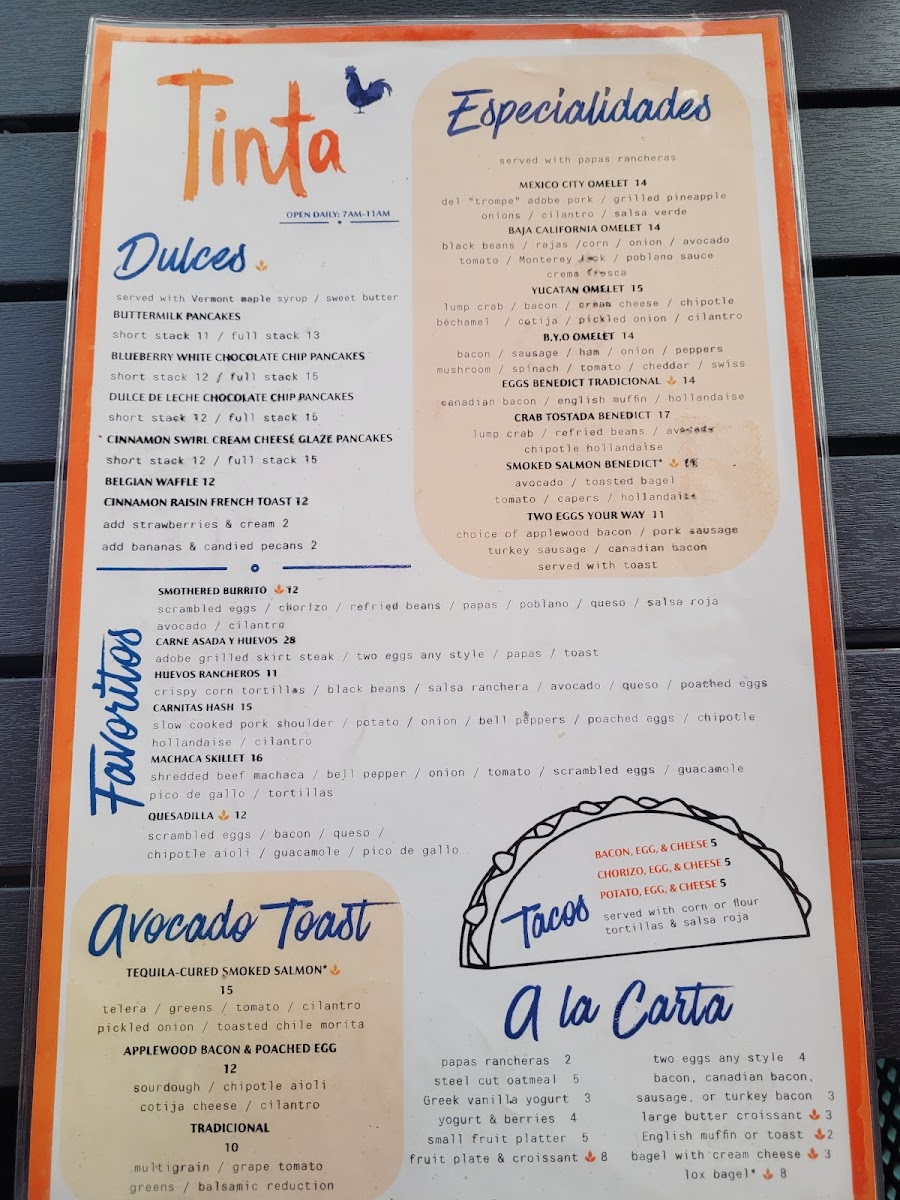 Tinta
OPEN DAILY: 7AM-11AM
Dulces
served with Vermont maple syrup / sweet butter
BUTTERMILK PANCAKES
short stack 11 / full stack 13
BLUEBERRY WHITE CHOCOLATE CHIP PANCAKES
short stack 12 / full stack 15
DULCE DE LECHE CHOCOLATE CHIP PANCAKES
short stack 12 / full stack 15
CINNAMON SWIRL CREAM CHEESE GLAZE PANCAKES
short stack 12 / full stack 15
BELGIAN WAFFLE 12
CINNAMON RAISIN FRENCH TOAST 12
add strawberries & cream 2
add bananas & candied pecans 2
Especialidades
served with papas rancheras
MEXICO CITY OMELET 14
del "trompe" adobe pork / grilled pineapple
onions / cilantro / salsa verde
BAJA CALIFORNIA OMELET 14
black beans / rajas /corn / onion / avocado
tomato / Monterey Jack / poblano sauce
crema fresca
YUCATAN OMELET 15
lump crab / bacon / cream cheese / chipotle
béchamel / cotija / pickled onion / cilantro
B.Y.O OMELET 14
bacon / sausage / ham / onion / peppers
mushroom / spinach / tomato / cheddar / swiss
EGGS BENEDICT TRADICIONAL 14
canadian bacon / english muffin / hollandaise
CRAB TOSTADA BENEDICT 17
lump crab / refried beans / avocado
chipotle hollandaise
SMOKED SALMON BENEDICT*
avocado / toasted bagel
tomato / capers / hollandaise
TWO EGGS YOUR WAY 11
choice of applewood bacon / pork sausage
turkey sausage / canadian bacon
served with toast
Favoritos
SMOTHERED BURRITO 12
scrambled eggs / chorizo / refried beans / papas / poblano / queso / salsa roja
avocado / cilantro
CARNE ASADA Y HUEVOS 28
adobe grilled skirt steak / two eggs any style / papas / toast
HUEVOS RANCHEROS 11
crispy corn tortillas / black beans / salsa ranchera / avocado / queso / poached eggs
CARNITAS HASH 15
slow cooked pork shoulder / potato / onion / bell peppers / poached eggs / chipotle
hollandaise / cilantro
MACHACA SKILLET 16
shredded beef machaca / bell pepper / onion / tomato / scrambled eggs / guacamole
pico de gallo / tortillas
QUESADILLA 12
scrambled eggs / bacon / queso /
chipotle aioli / guacamole / pico de gallo
Tacos
BACON, EGG, & CHEESE 5
CHORIZO, EGG, & CHEESE 5
POTATO, EGG, & CHEESE 5
served with corn or flour
tortillas & salsa roja
Avocado Toast
TEQUILA-CURED SMOKED SALMON*
15
telera / greens / tomato / cilantro
pickled onion / toasted chile morita
APPLEWOOD BACON & POACHED EGG
12
sourdough / chipotle aioli
cotija cheese / cilantro
TRADICIONAL
10
multigrain / grape tomato
greens / balsamic reduction
A la Carta
papas rancheras 2
steel cut oatmeal 5
Greek vanilla yogurt 3
yogurt & berries 4
small fruit platter 5
fruit plate & croissant 8
two eggs any style 4
bacon, canadian bacon,
sausage, or turkey bacon 3
large butter croissant 3
English muffin or toast 2
bagel with cream cheese 3
lox bagel* 8